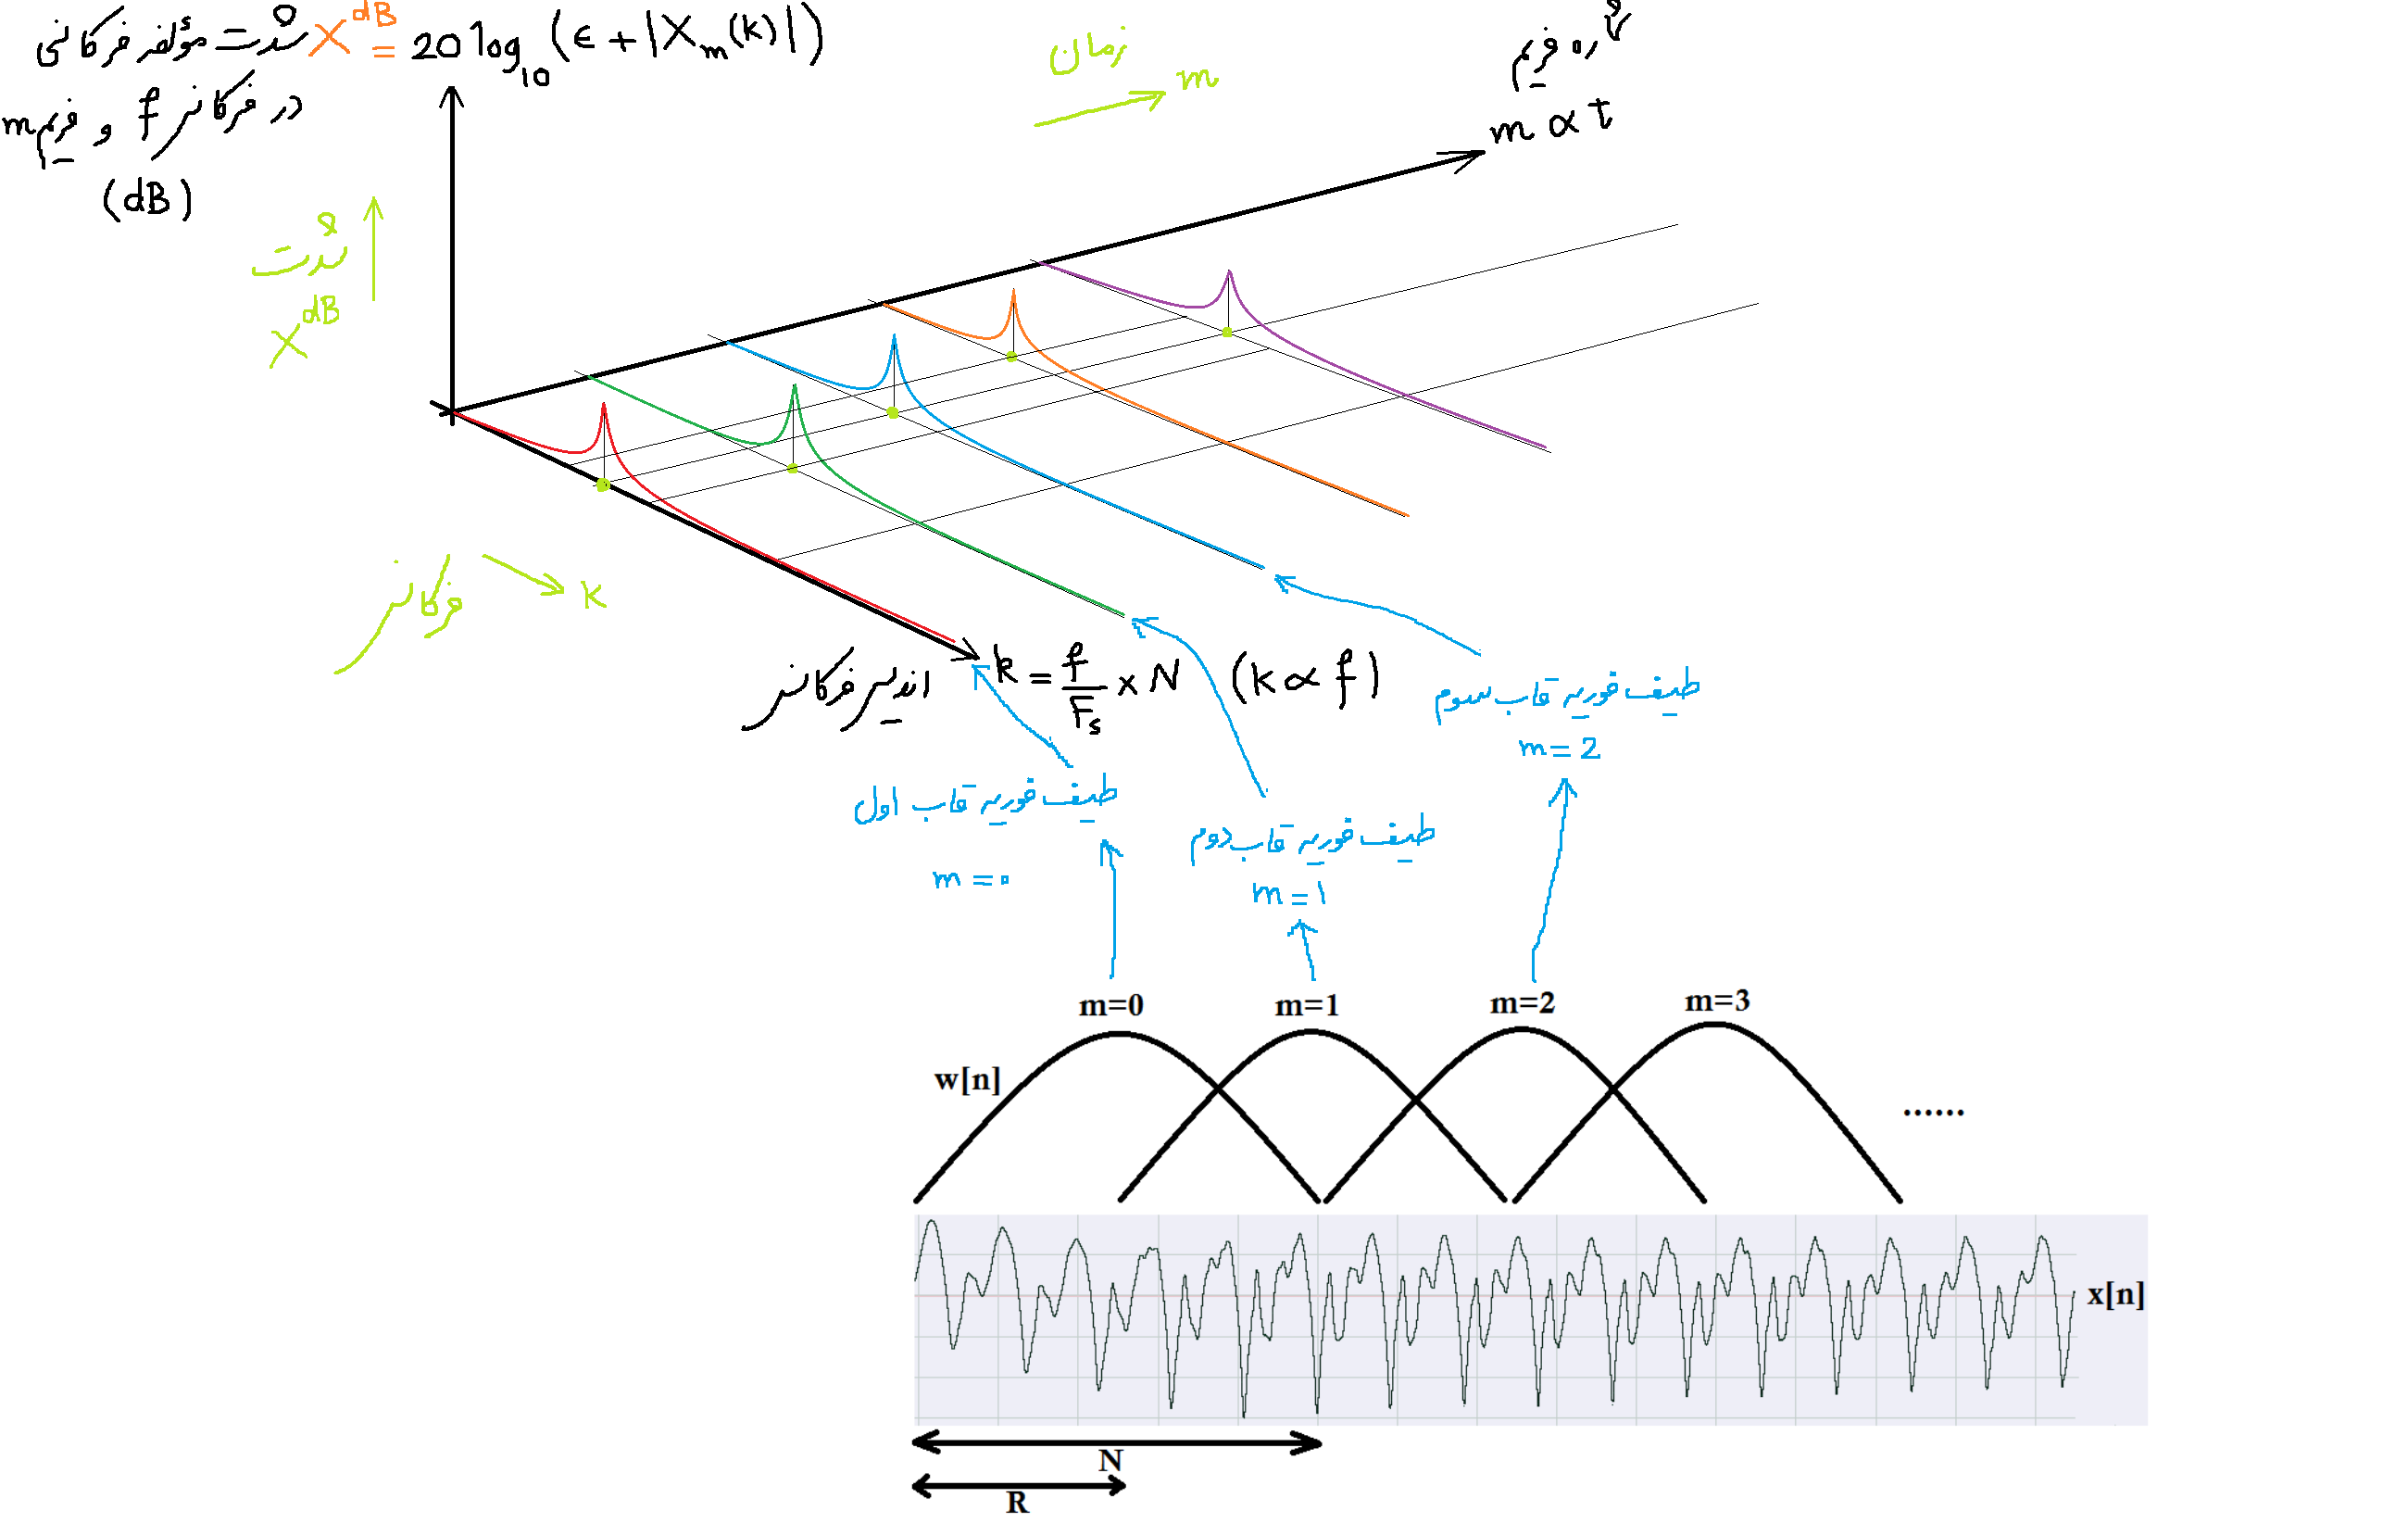 شدت مؤلفه فرکانسی X^dB = 20 log₁₀ (ϵ + |Xₘ(k)|)
در فرکانس f و فریم m
(dB)
زمان
m
شماره فریم
m ∝ t
شدت
X^dB
فرکانس
k
اندیس فرکانس k = f/Fₛ × N (k ∝ f)
طیف فوریه قاب سوم
m = 2
طیف فوریه قاب اول
m = 0
طیف فوریه قاب دوم
m = 1
m=0 m=1 m=2 m=3
w[n]
......
x[n]
N
R